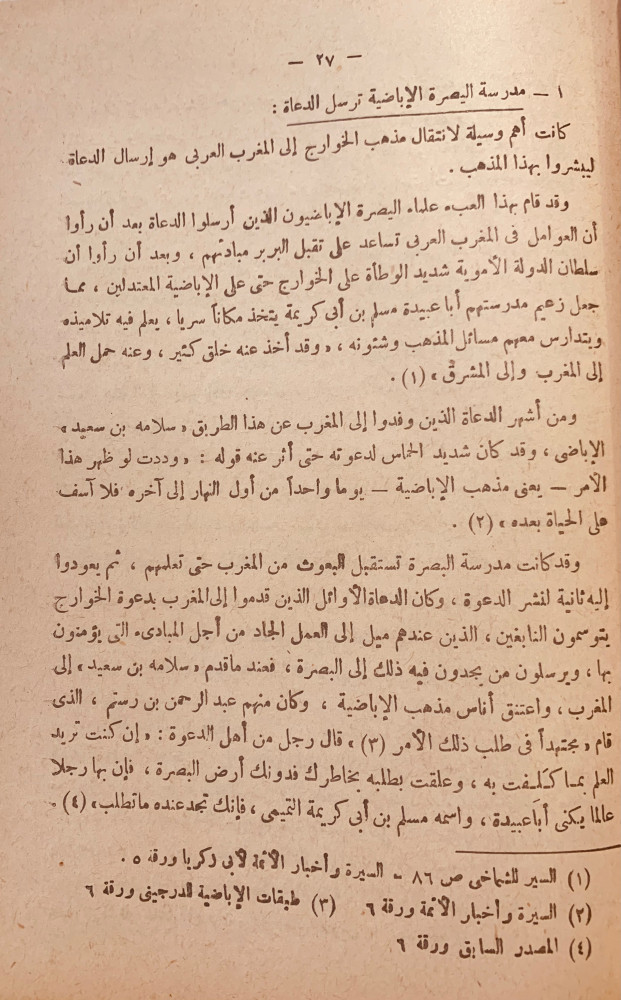 — ٢٧ —
١ — مدرسة البصرة الإباضية ترسل الدعاة :
كانت أهم وسيلة لانتقال مذهب الخوارج إلى المغرب العربى هو إرسال الدعاة
ليبشروا بهذا المذهب .
وقد قام بهذا العبء علماء البصرة الإباضيون الذين أرسلوا الدعاة بعد أن رأوا
أن العوامل فى المغرب العربى تساعد على تقبل البربر مبادئهم ، وبعد أن رأوا أن
سلطان الدولة الأموية شديد الوطأة على الخوارج حتى على الإباضية المعتدلين ، مما
جعل زعيم مدرستهم أبا عبيدة مسلم بن أبى كريمة يتخذ مكاناً سريا ، يعلم فيه تلاميذه
ويتدارس معهم مسائل المذهب وشئونه ، « وقد أخذ عنه خلق كثير ، وعنه حمل العلم
إلى المغرب وإلى المشرق » (١) .
ومن أشهر الدعاة الذين وفدوا إلى المغرب عن هذا الطريق « سلامه بن سعيد »
الإباضى ، وقد كان شديد الحماس لدعوته حتى أثر عنه قوله : « وددت لو ظهر هذا
الأمر — يعنى مذهب الإباضية — يوما واحداً من أول النهار إلى آخره فلا آسف
على الحياة بعده » (٢) .
وقد كانت مدرسة البصرة تستقبل البعوث من المغرب حتى تعلمهم ، ثم يعودوا
إليه ثانية لنشر الدعوة ، وكان الدعاة الأوائل الذين قدموا إلى المغرب بدعوة الخوارج
يتوسمون النابغين ، الذين عندهم ميل إلى العمل الجاد من أجل المبادىء التى يؤمنون
بها ، ويرسلون من يجدون فيه ذلك إلى البصرة ، فعند ماقدم « سلامه بن سعيد » إلى
المغرب ، واعتنق أناس مذهب الإباضية ، وكان منهم عبد الرحمن بن رستم ، الذى
قام « مجتهداً فى طلب ذلك الأمر (٣) » قال رجل من أهل الدعوة : « إن كنت تريد
العلم بمـا كـَلـِفت به ، وعلقت بطلبه بخاطرك فدونك أرض البصرة ، فإن بها رجلا
عالما يكنى أبَا عبيدة ، واسمه مسلم بن أبى كريمة التميمى ، فإنك تجد عنده ماتطلب » (٤) .
(١) السير للشماخى ص ٨٦ - السيرة وأخبار الأئمة لأبى زكريا ورقة ٥ .
(٢) السيرة وأخبار الأئمة ورقة ٦ (٣) طبقات الإباضية للدرجينى ورقة ٦
(٤) المصدر السابق ورقة ٦